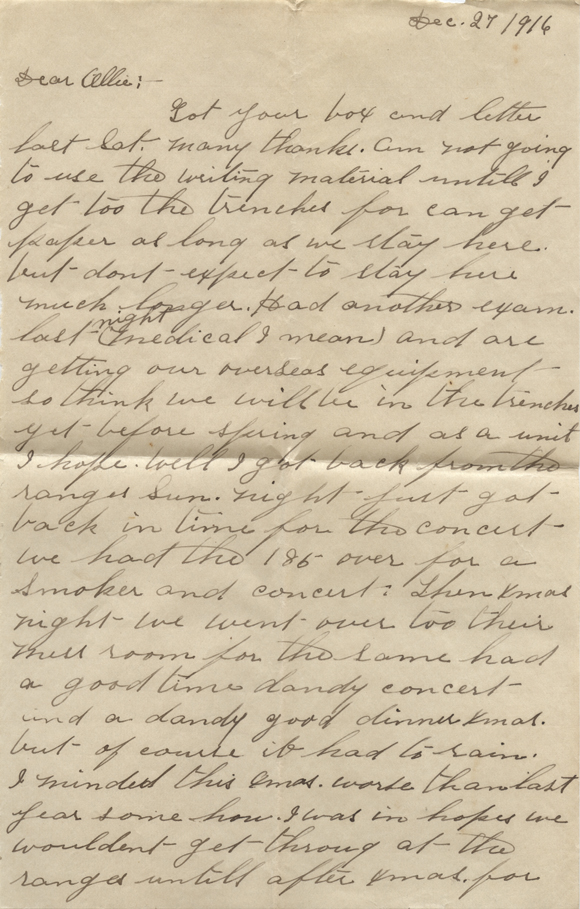 Dec. 27/1916
Dear Allie:-
Got your box and letter
last Sat. many thanks. Am not going
to use the writing material untill I
get too the trenches for can get
paper as long as we stay here.
but dont expect to stay here
much longer. Had another exam.
last night (medical I mean) and are
getting our overseas equipement
so think we will be in the trenches
yet before spring and as a unit
I hope. Well I got back from the
ranges Sun. night just got
back in time for the concert
we had the 185 over for a
smoker and concert: Then Xmas
night we went over too their
mess room for the same had
a good time dandy concert
and a dandy good dinner Xmas.
but of course it had to rain.
I minded this Xmas. worse than last
year some how. I was in hopes we
wouldent get throug at the
ranges untill after Xmas. for